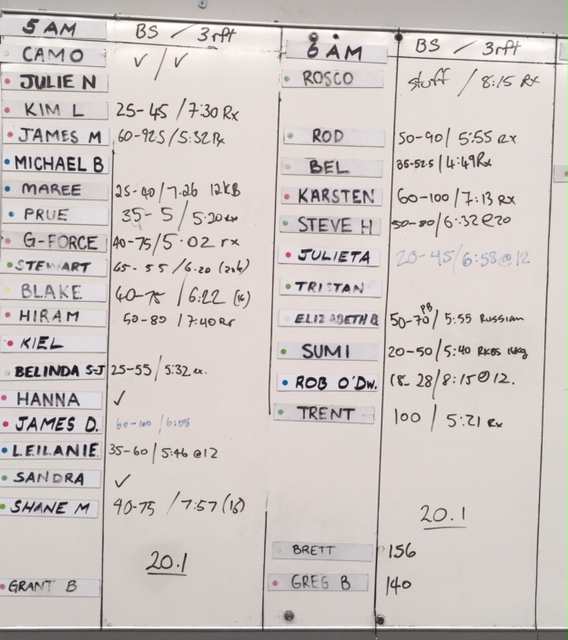 5 AM BS / 3rft
CAMO ✓ / ✓
JULIE N
KIM L 25-45 / 7:30 Rx
JAMES M 60-92.5 / 5:32 Rx
MICHAEL B
MAREE 25-40 / 7:26 12KB
PRUE 35- 5 / 5:20 Rx
G-FORCE 40-75 / 5:02 rx
STEWART 65-55 / 6:20
BLAKE 40-75 / 6:22 (16)
HIRAM 50-80 / 7:40 Rx
KIEL
BELINDA S-J 25-55 / 5:32 rx.
HANNA ✓
JAMES D. 60-100 /
LEILANIE 35-60 / 5:46 @12
SANDRA ✓
SHANE M 40-75 / 7:57 (16)
20.1
GRANT B
6 AM BS / 3rft
ROSCO stuff / 8:15 Rx
ROD 50-90 / 5:55 Rx
BEL 35-52.5 / 4:49 Rx
KARSTEN 60-100 / 7:13 RX
STEVE H 50-80 / 6:32 @20
JULIETA 20-45 / 6:58 @12
TRISTAN
PB
ELIZABETH B 50-70 / 5:55 Russian
SUMI 20-50 / 5:40 RKBS 16kg
ROB O'DW. 18-28 / 8:15 @12.
TRENT 100 / 5:21 Rx
20.1
BRETT 156
GREG B 140